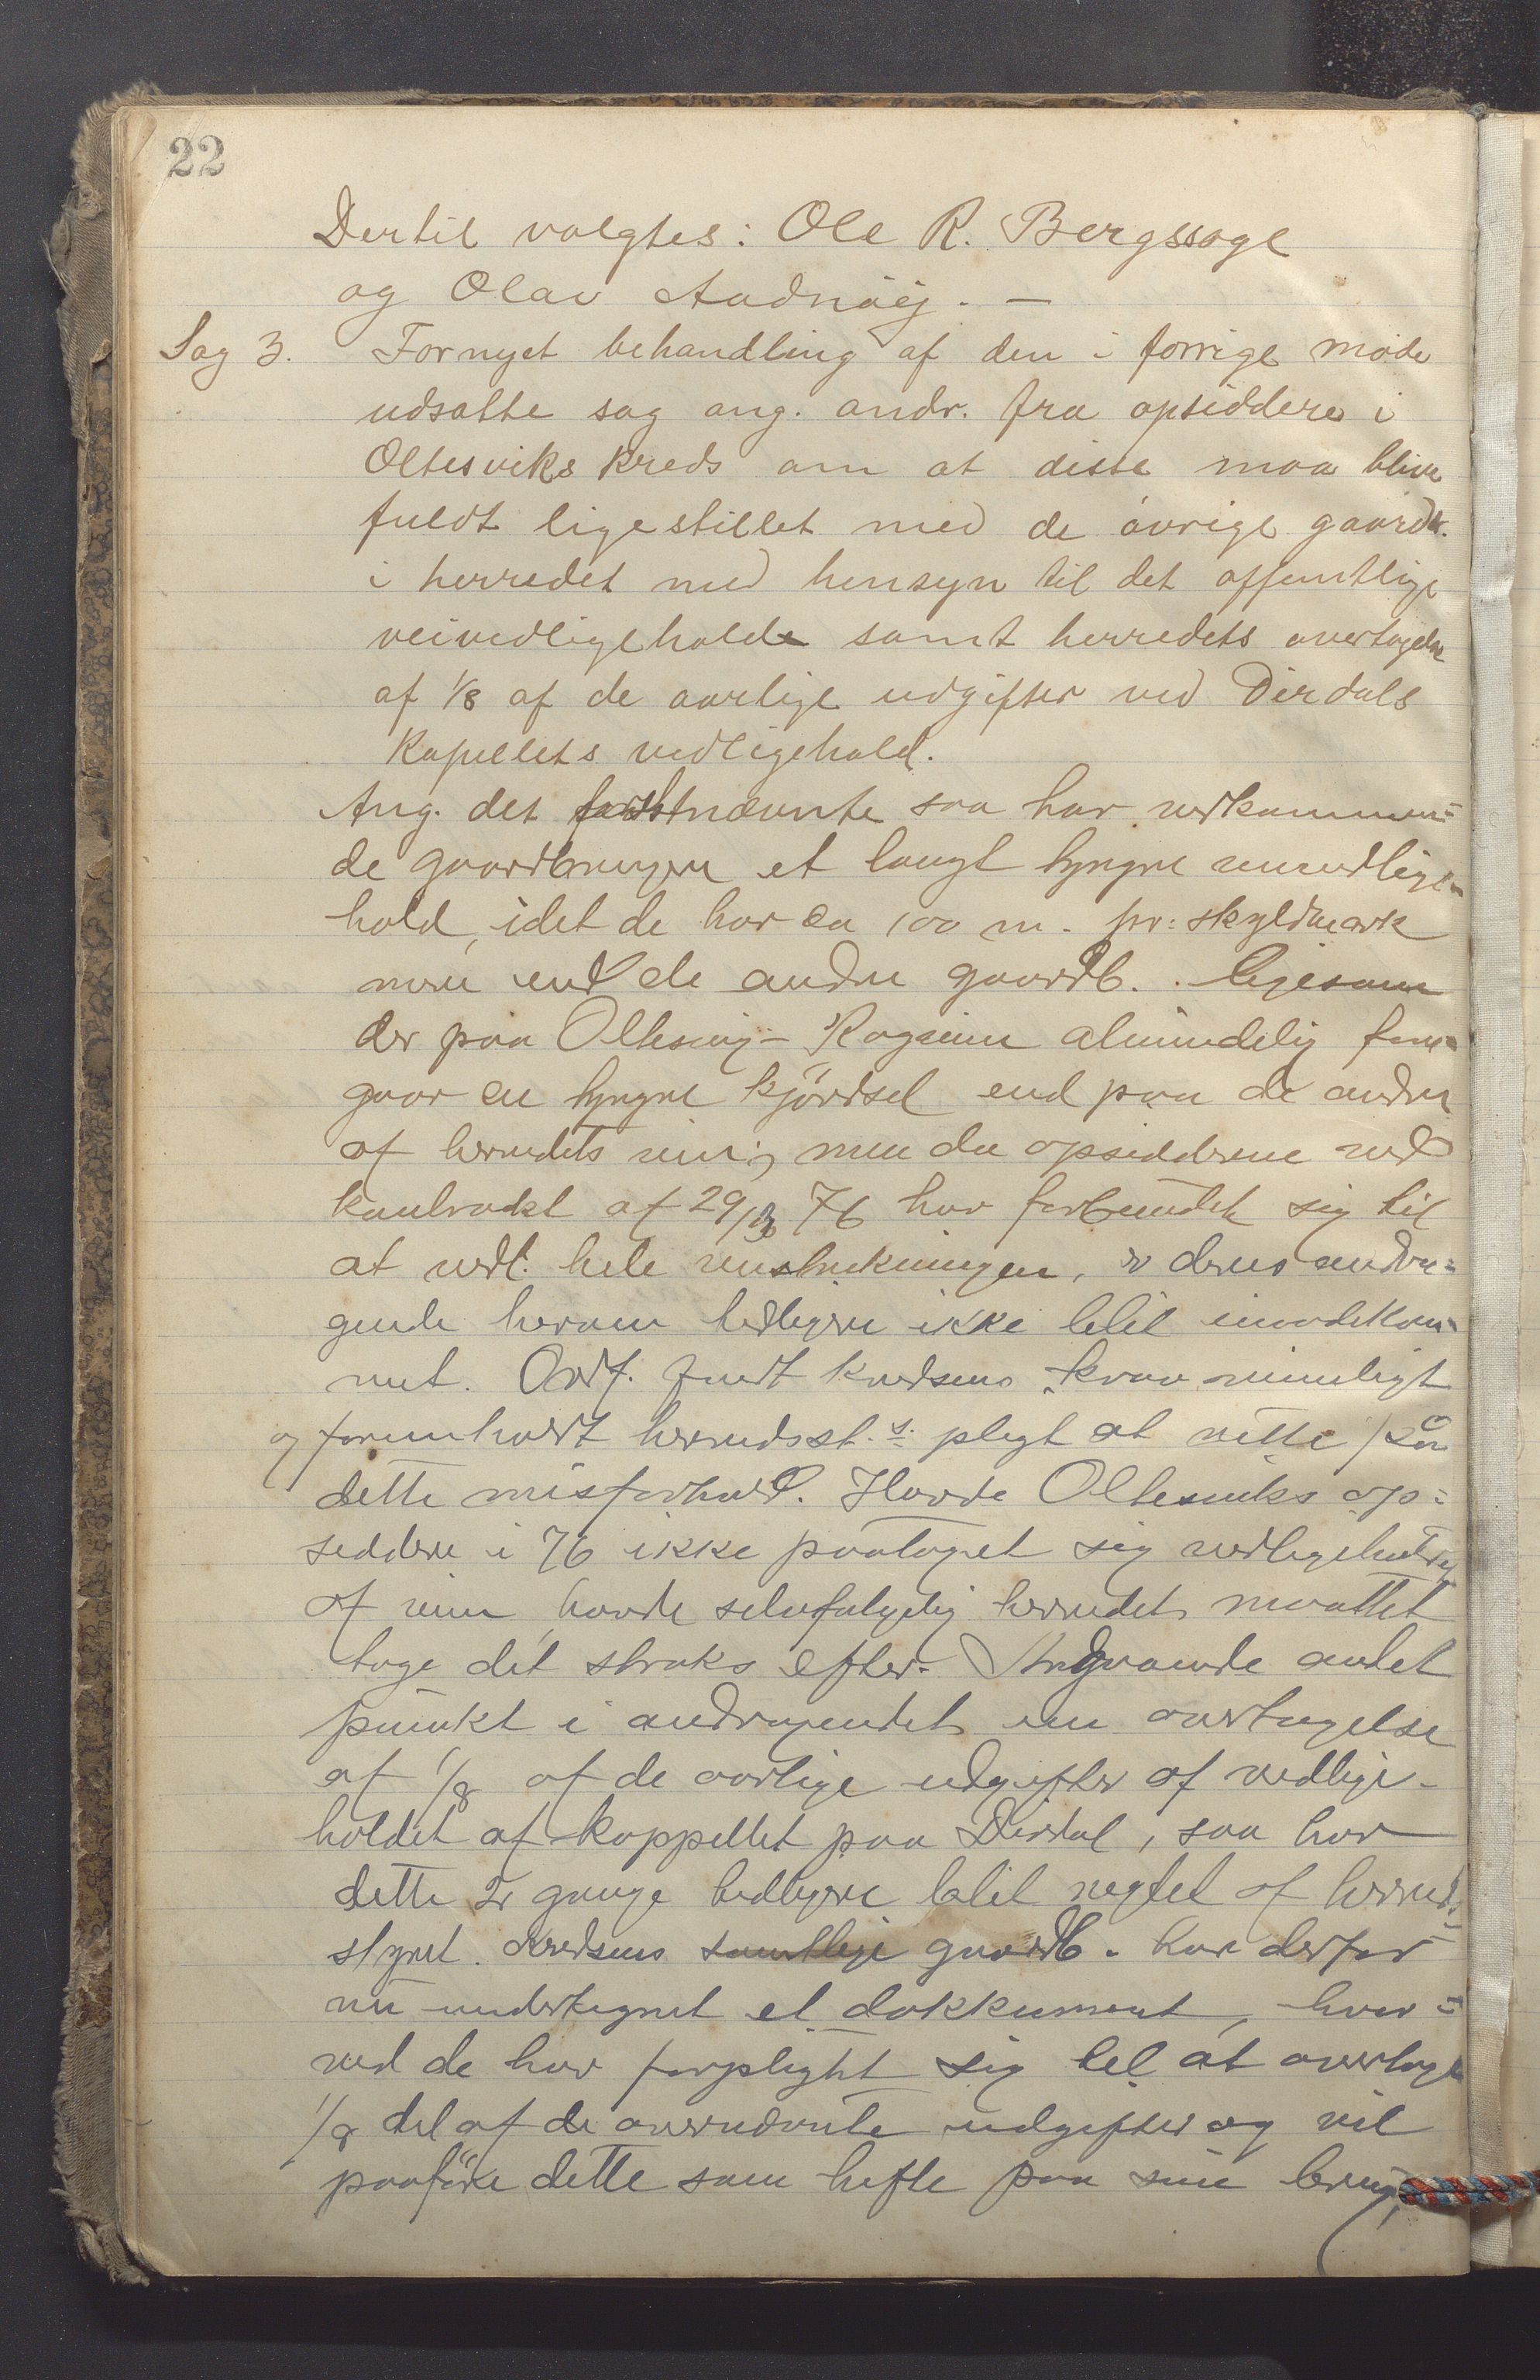 22
Dertil valgtes: Ole R. Bergssagel
og Olav Aadnøij. —
Sag 3. Fornyet behandling af den i forrige møde
udsatte sag ang. andr. fra opsiddere i
Oltesviks kreds om at disse maa blive
fuldt ligestillet med de øvrige gaardb.
i herredet med hensyn til det offentlige
veivedligehold samt herredets overtagelse
af 1/8 af de aarlige udgifter ved Dirdals
Kapellets vedligehold.
Ang. det førstnævnte saa har vedkommen=
de gaardbrugere et langt tyngre veivedlige=
hold, idet de har ca 100 m. pr: skyldmark
mere end de andre gaardb. . ligesom
der paa Oltesvig - Ragsveien almindelig fore=
gaar en tyngre kjørsel end paa de andre
af herredets veie; men da opsidderne ved
kontrakt af 29/10 76 har forbundet sig til
at vedl. hele veistrekningen, er deres andra=
gende herom tidligere ikke blit imødekom=
met. Ordf. fandt kredsens krav rimeligt
og forøvrigt herredsst.s. pligt at rette paa
dette misforhold. Havde Oltesviks op=
siddere i 76 ikke paataget sig vedligeholdet
af veien, havde selvfølgelig herredet maattet
tage det straks efter. Angaaende andet
punkt i andragendet om overtagelse
af 1/8 af de aarlige udgifter af vedlige-
holdet af kappellet paa Dirdal, saa har
dette 2 gange tidligere blit negtet af herreds=
styret. Kredsens samtlige gaardb. har derfor
nu undertegnet et dokkument, hvor=
ved de har forpligtet sig til at overtage
1/8 del af de ovennævnte udgifter og vil
paaføre dette som hefte paa sine brug,